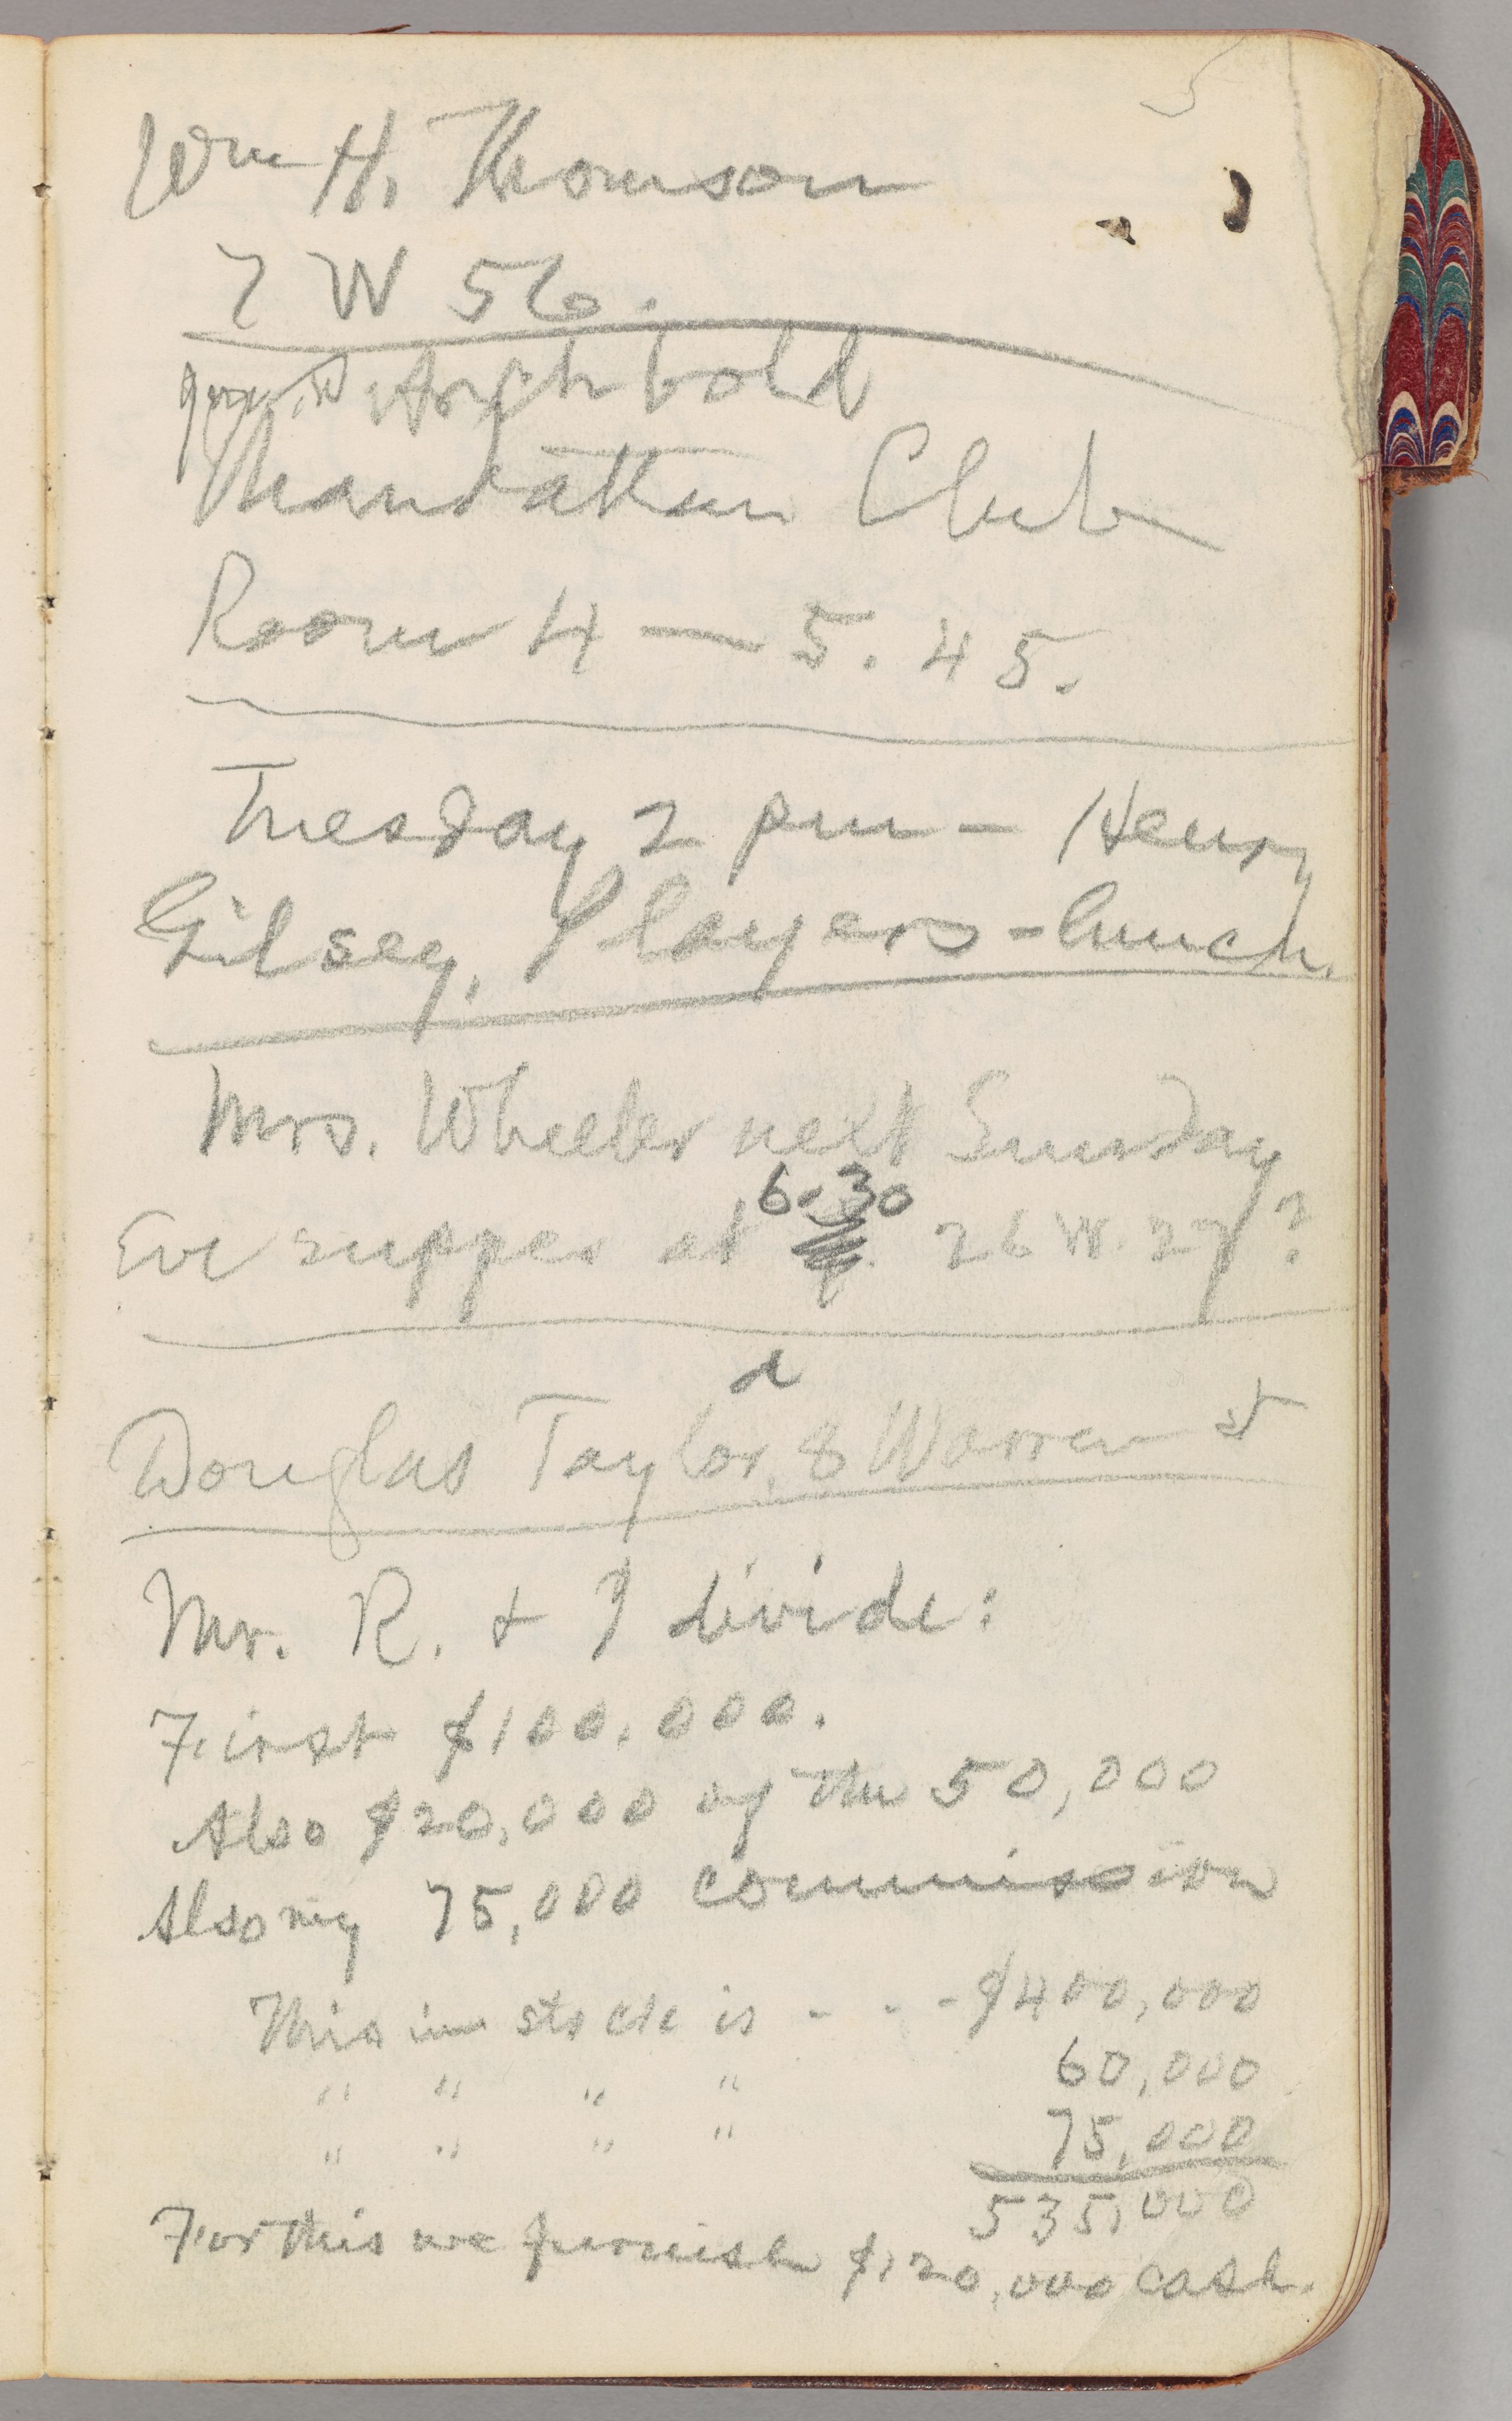 Wm H. Thomson
7 W 56.
Archbold
Manhattan Club
Room 4 — 5.45.
Tuesday 2 pm — Henry
Gilsey, Players - lunch.
Mrs. Wheeler next Sunday
6.30
Eve supper at 26 W. 27?
d
Douglas Taylor, 8 Warren st
Mr. R. & I divide:
First $100,000.
Also $20,000 of the 50,000
Also my 75,000 commission
This in stock is - - - $400,000
" " " " 60,000
" " " " 75,000
535,000
For this we furnish $120,000 cash.